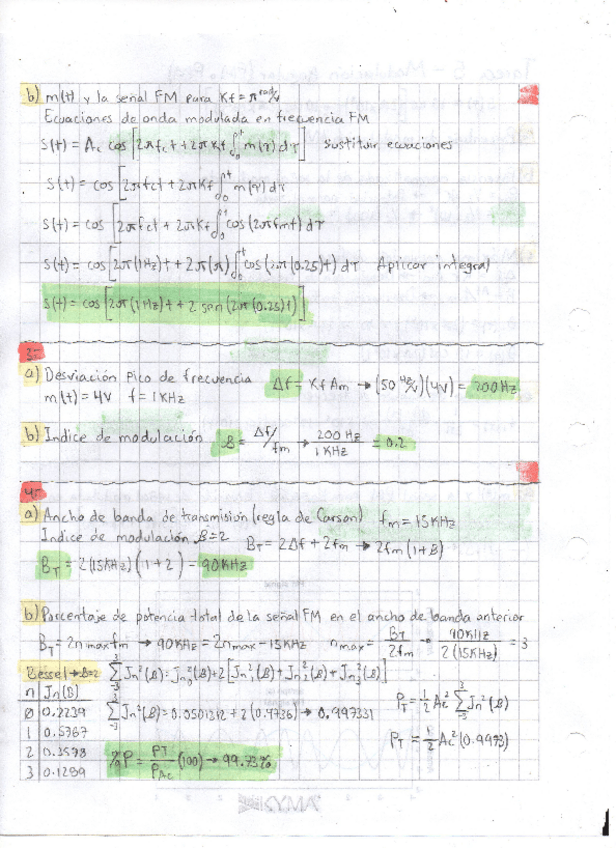 b) m(t) y la señal FM para Kf = π rad/v
Ecuaciones de onda modulada en frecuencia FM
S(t) = Ac cos [2πfct + 2πKf ∫₀ᵗ m(τ) dτ] sustituir ecuaciones
S(t) = cos [2πfct + 2πKf ∫₀ᵗ m(τ) dτ
S(t) = cos [2πfct + 2πKf ∫₀ᵗ cos(2πfmt) dτ
S(t) = cos [2π(1Hz)t + 2π(π) ∫₀ᵗ cos(2π(0.25)t) dτ Aplicar integral
S(t) = cos [2π(1Hz)t + 2 sen(2π(0.25)t)]
3-
a) Desviación Pico de frecuencia Δf = Kf Am → (50 Hz/v)(4V) = 200 Hz
m(t) = 4V f = 1 KHz
b) Indice de modulación β = Δf/fm → 200 Hz / 1 KHz = 0.2
4-
a) Ancho de banda de transmisión (regla de Carson) fm = 15 KHz
Indice de modulación β=2 BT = 2Δf + 2fm → 2fm (1+β)
BT = 2(15KHz)(1+2) = 90KHz
b) Porcentaje de potencia total de la señal FM en el ancho de banda anterior
BT = 2n max fm → 90KHz = 2n max - 15KHz n max = BT / 2fm → 90KHz / 2(15KHz) = 3
Bessel → β=2 Σ₋₃³ Jn²(β) = Jn₀²(β) + 2 [Jn₁²(β) + Jn₂²(β) + Jn₃²(β)]
n | Jn(β)
0 | 0.2239 Σ₋₃³ Jn²(β) = 0.0501312 + 2(0.4736) → 0.997331
PT = 1/2 Ac² Σ₋₃³ Jn²(β)
1 | 0.5767
PT = 1/2 Ac² (0.9973)
2 | 0.3528
%P = PT / PAc (100) → 99.73%
3 | 0.1289